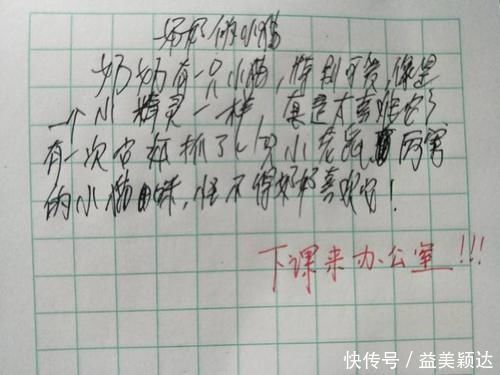 奶奶的小猫
奶奶有一只小猫,特别可爱,像是
一个小精灵一样,真是太喜欢它了
有一次它在抓了小只小老鼠,厉害
的小猫咪,怪不得奶奶喜欢它!
下课来办公室!!!
快传号/益美颖达